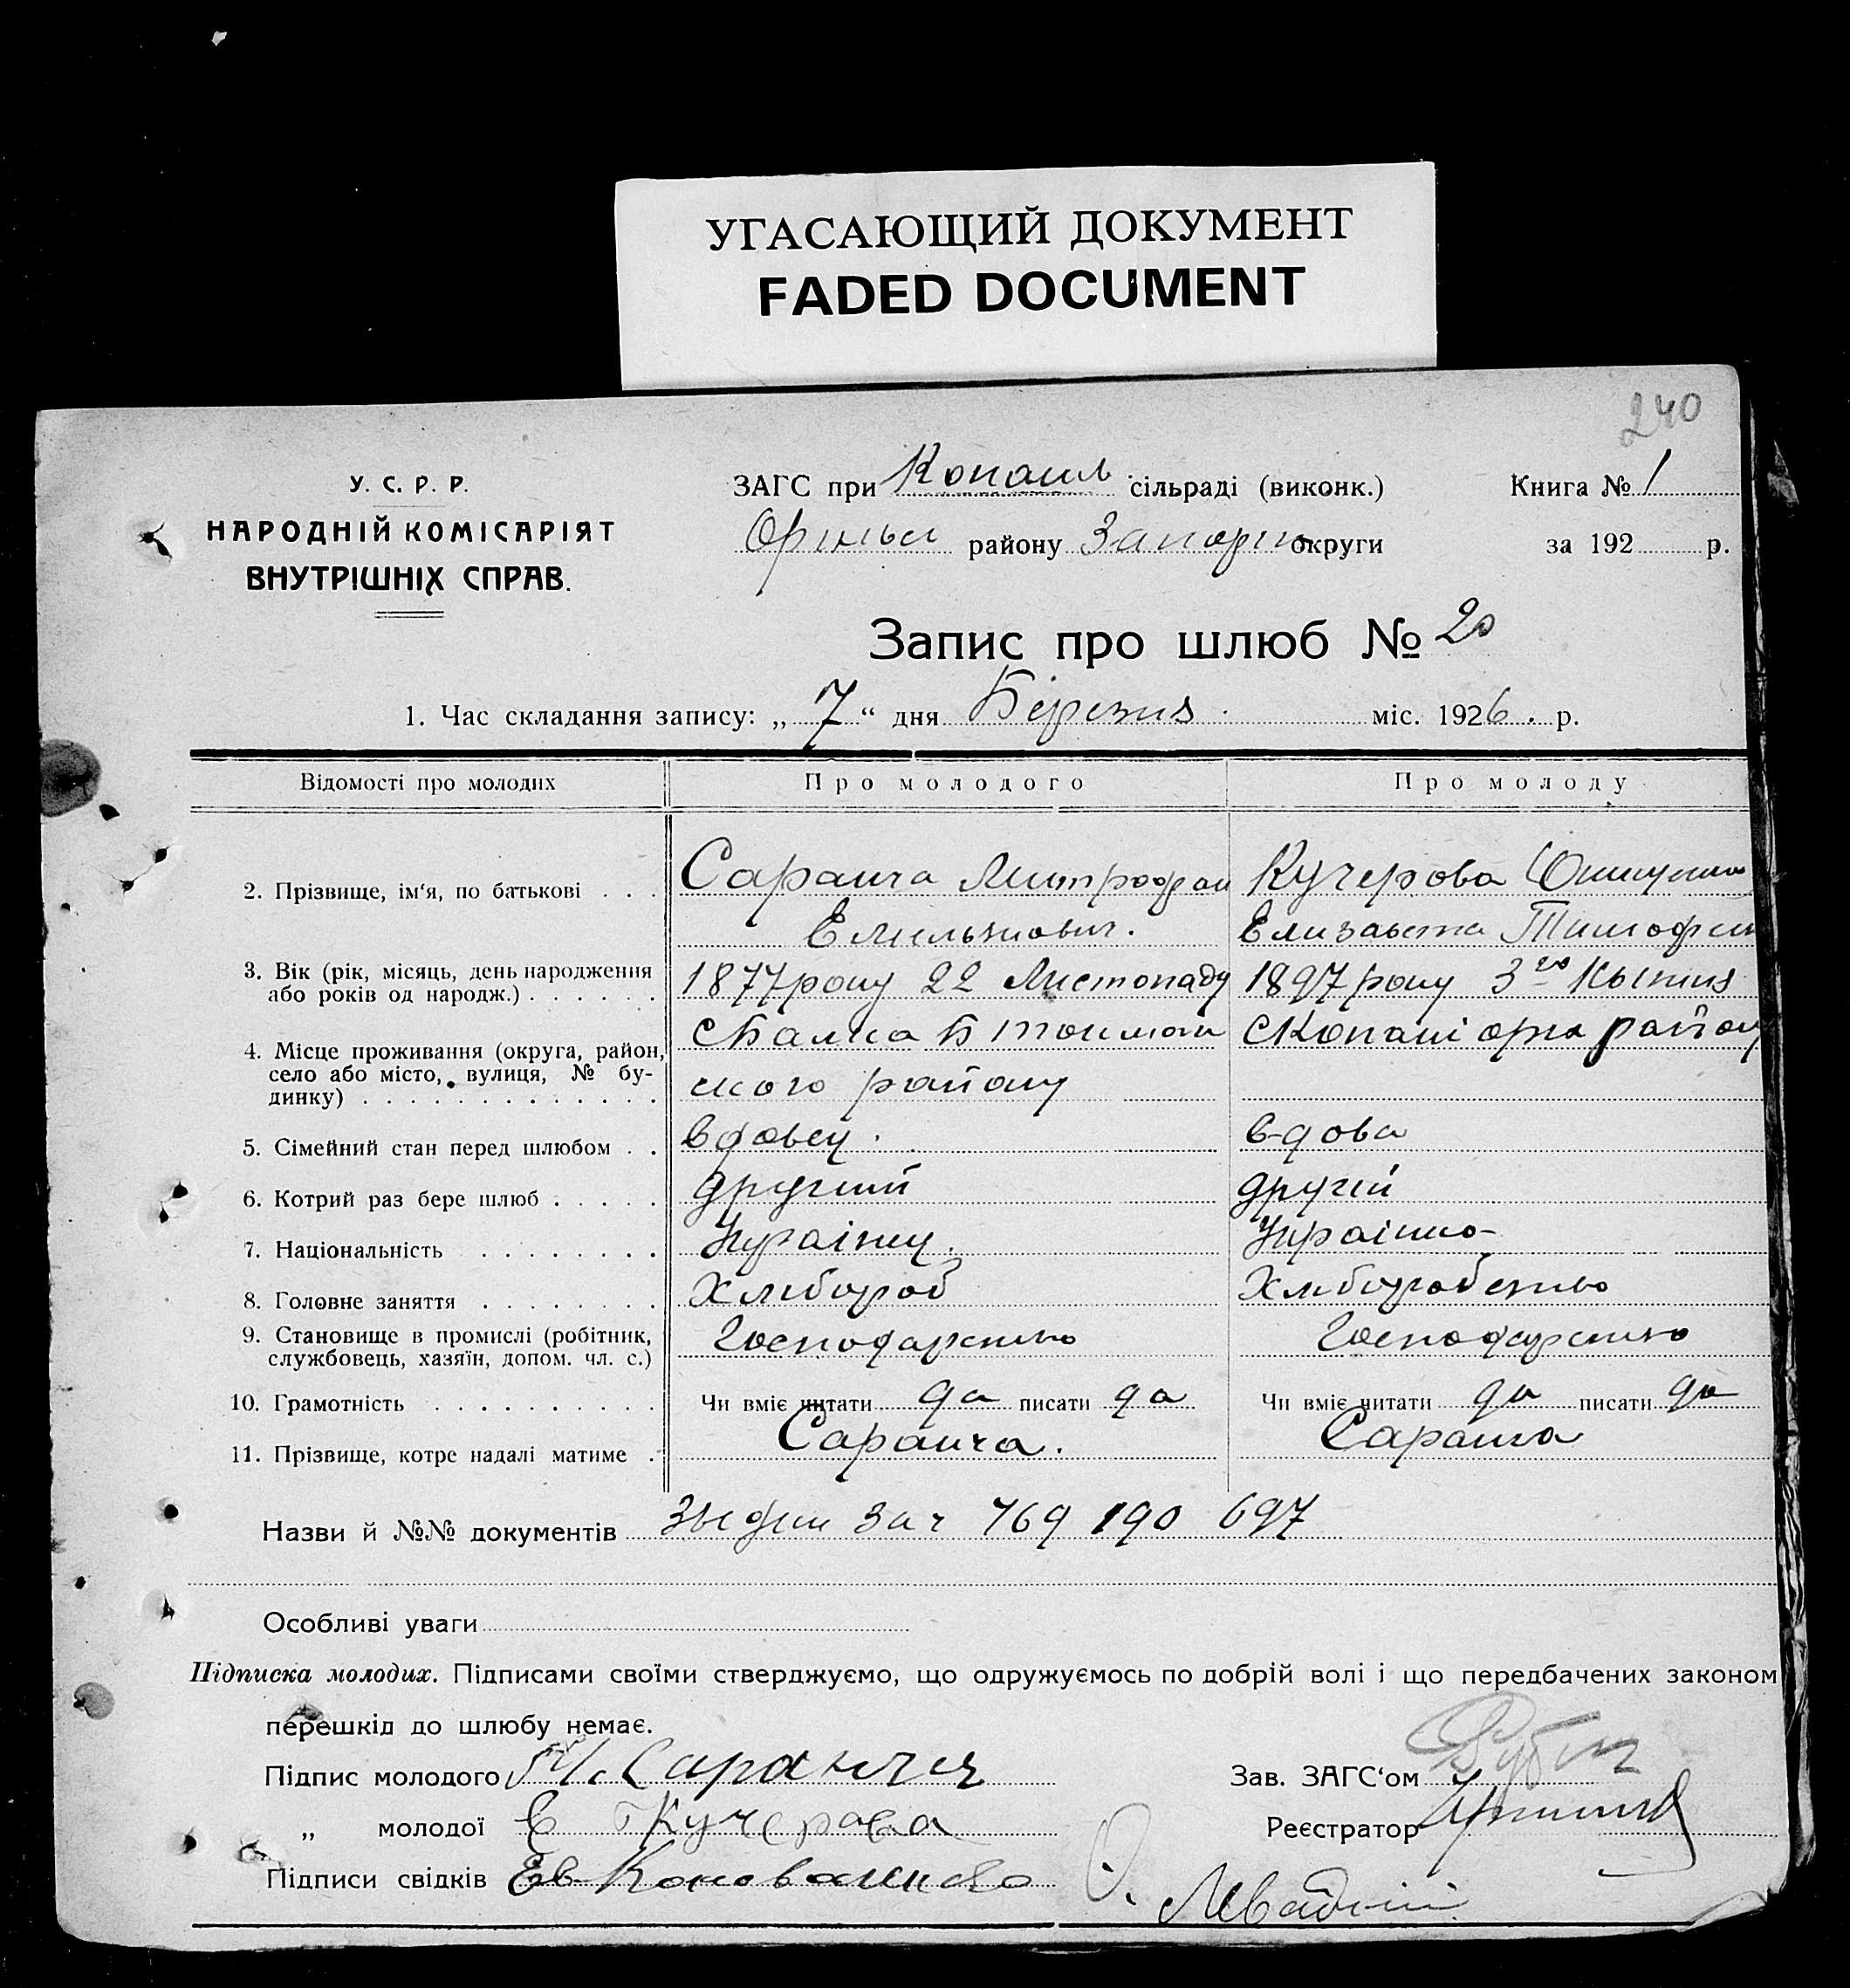 УГАСАЮЩИЙ ДОКУМЕНТ
FADED DOCUMENT
240
У. С. Р. Р.
НАРОДНІЙ КОМІСАРІЯТ
ВНУТРІШНІХ СПРАВ.
ЗАГС при Копань сільраді (виконк.)
Книга № 1
району Запоріж округи
за 192 р.
Запис про шлюб № 20
1. Час складання запису: „ 7 “ дня Бірезня міс. 1926. р.
Відомості про молодих
Про молодого
Про молоду
2. Прізвище, ім‘я, по батькові . . .
Саранча Митрофан
Емельянович.
Кучерова
Елизавета Тимофеи
3. Вік (рік, місяць, день народження
або років од народж.) . . . . . .
1877 року 22 Листопаду
1897 року 3го
4. Місце проживання (округа, район,
село або місто, вулиця, № бу-
динку) . . . . . . . . . . . . .
с Балка Б Токмац
ского району
с Копані оріх району
5. Сімейний стан перед шлюбом . .
вдовец.
вдова
6. Котрий раз бере шлюб . . . . .
другий
другій
7. Національність . . . . . . . .
Украінец.
Украінка
8. Головне заняття . . . . . . . .
Хлибороб
Хлиборобство
9. Становище в промислі (робітник,
службовець, хазяїн, допом. чл. с.)
Господарство
Господарство
10. Грамотність . . . . . . . . . .
Чи вміє читати да писати да
Чи вміє читати да писати да
11. Прізвище, котре надалі матиме .
Саранча.
Саранча
Назви й №№ документів 769 190 697
Особливі уваги
Підписка молодих. Підписами своїми стверджуємо, що одружуємось по добрій волі і що передбачених законом
перешкід до шлюбу немає.
Підпис молодого М. Саранча
Зав. ЗАГС‘ом
„ молодої Е Кучерова
Реєстратор
Підписи свідків Ев Коноваленко
О. Левадний